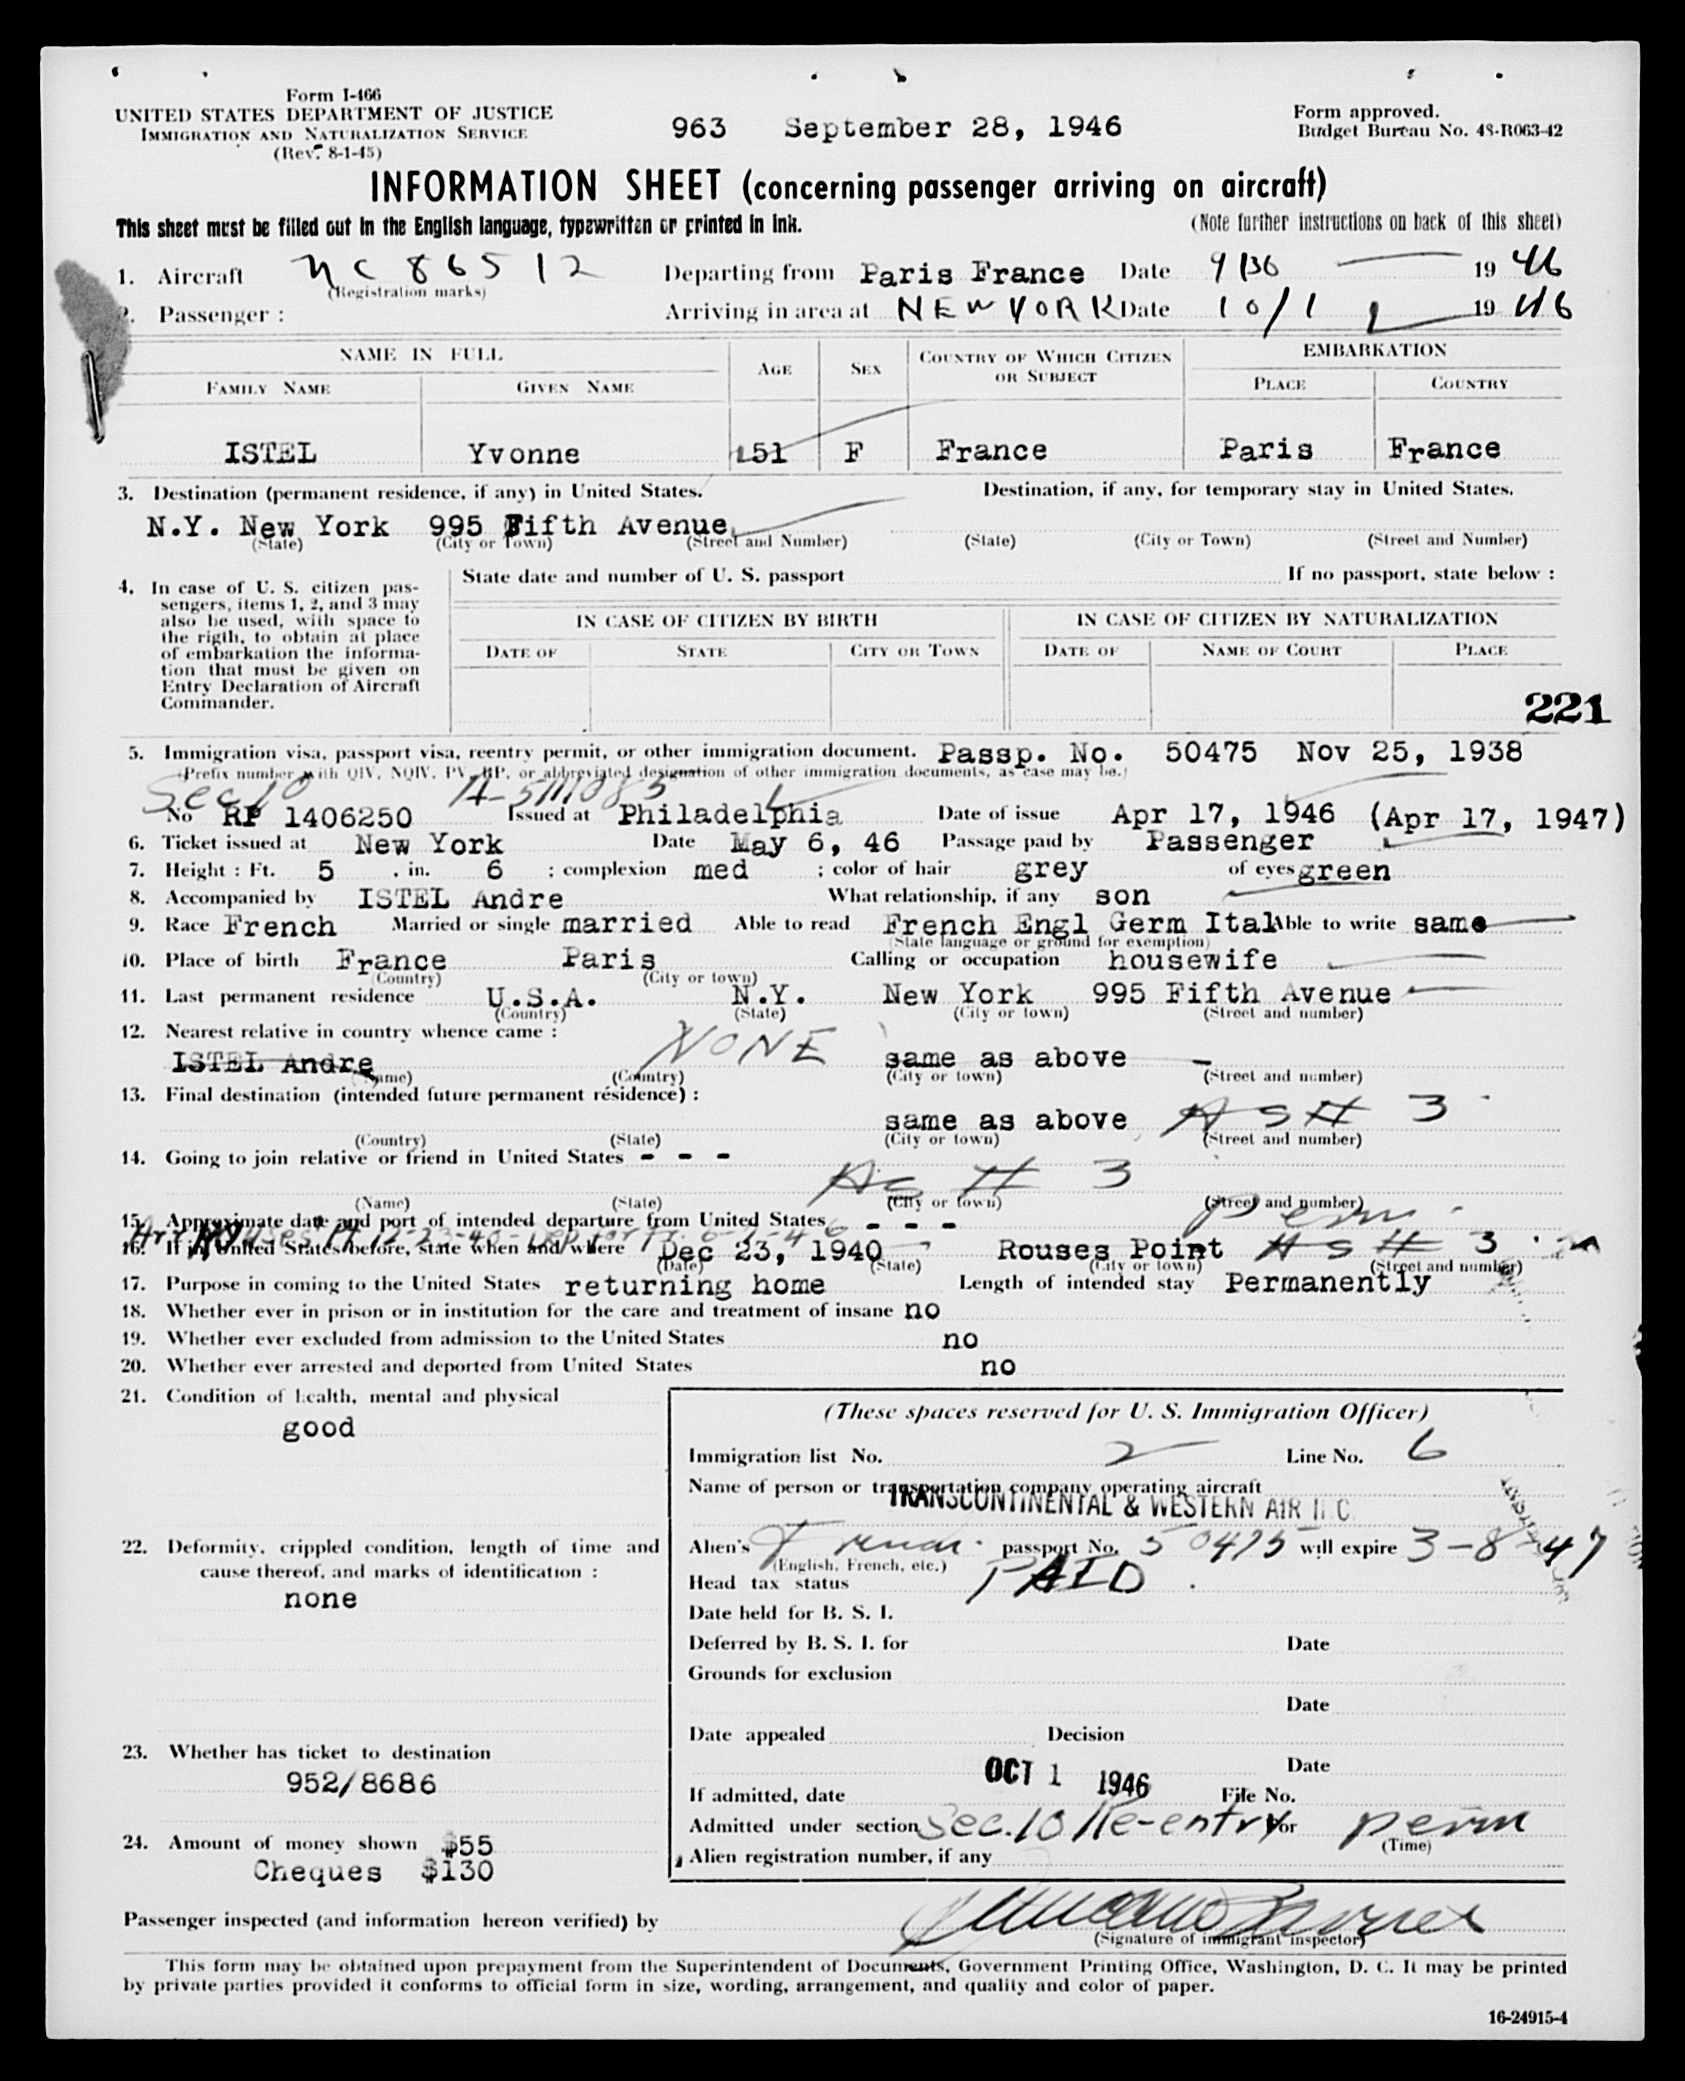 Form I-466
UNITED STATES DEPARTMENT OF JUSTICE
IMMIGRATION AND NATURALIZATION SERVICE
(Rev. 8-1-45)
963 September 28, 1946
Form approved.
Budget Bureau No. 43-R063-42
INFORMATION SHEET (concerning passenger arriving on aircraft)
This sheet must be filled out in the English language, typewritten or printed in ink. (Note further instructions on back of this sheet)
1. Aircraft NC 86512 Departing from Paris France Date 9/30 1946
(Registration marks)
2. Passenger : Arriving in area at NEW YORK Date 10/1 1946
NAME IN FULL AGE SEX COUNTRY OF WHICH CITIZEN OR SUBJECT EMBARKATION
FAMILY NAME GIVEN NAME PLACE COUNTRY
ISTEL Yvonne 51 F France Paris France
3. Destination (permanent residence, if any) in United States. Destination, if any, for temporary stay in United States.
N.Y. New York 995 Fifth Avenue
(State) (City or Town) (Street and Number) (State) (City or Town) (Street and Number)
4. In case of U. S. citizen pas-
sengers, items 1, 2, and 3 may
also be used, with space to
the rigth, to obtain at place
of embarkation the informa-
tion that must be given on
Entry Declaration of Aircraft
Commander.
State date and number of U. S. passport If no passport, state below :
IN CASE OF CITIZEN BY BIRTH IN CASE OF CITIZEN BY NATURALIZATION
DATE OF STATE CITY OR TOWN DATE OF NAME OF COURT PLACE
221
5. Immigration visa, passport visa, reentry permit, or other immigration document. Passp. No. 50475 Nov 25, 1938
(Prefix number with QIV, NQIV, PV, RP, or abbreviated designation of other immigration documents, as case may be.)
Sec 10 A-5111085
No RP 1406250 Issued at Philadelphia Date of issue Apr 17, 1946 (Apr 17, 1947)
6. Ticket issued at New York Date May 6, 46 Passage paid by Passenger
7. Height : Ft. 5 . in. 6 ; complexion med ; color of hair grey of eyes green
8. Accompanied by ISTEL Andre What relationship, if any son
9. Race French Married or single married Able to read French Engl Germ Ital Able to write same
(State language or ground for exemption)
10. Place of birth France Paris Calling or occupation housewife
(Country) (City or town)
11. Last permanent residence U.S.A. N.Y. New York 995 Fifth Avenue
(Country) (State) (City or town) (Street and number)
12. Nearest relative in country whence came :
ISTEL Andre NONE same as above
(Name) (Country) (City or town) (Street and number)
13. Final destination (intended future permanent résidence) :
same as above As # 3
(Country) (State) (City or town) (Street and number)
14. Going to join relative or friend in United States - - -
As # 3
(Name) (State) (City or town) (Street and number)
15. Approximate date and port of intended departure from United States - - - Perm.
16. If in United States before, state when and where Dec 23, 1940 Rouses Point As # 3
(Date) (State) (City or town) (Street and number)
17. Purpose in coming to the United States returning home Length of intended stay Permanently
18. Whether ever in prison or in institution for the care and treatment of insane no
19. Whether ever excluded from admission to the United States no
20. Whether ever arrested and deported from United States no
21. Condition of health, mental and physical
good
22. Deformity, crippled condition, length of time and
cause thereof, and marks of identification :
none
23. Whether has ticket to destination
952/8686
24. Amount of money shown $55
Cheques $130
(These spaces reserved for U. S. Immigration Officer)
Immigration list No. 2 Line No. 6
Name of person or transportation company operating aircraft
TRANSCONTINENTAL & WESTERN AIR INC
Alien's French passport No. 50475 will expire 3-8-47
(English, French, etc.)
Head tax status PAID
Date held for B. S. I.
Deferred by B. S. I. for Date
Grounds for exclusion
Date
Date appealed Decision
Date
If admitted, date OCT 1 1946 File No.
Admitted under section Sec. 10 Re-entry for perm
(Time)
Alien registration number, if any
Passenger inspected (and information hereon verified) by
(Signature of immigrant inspector)
This form may be obtained upon prepayment from the Superintendent of Documents, Government Printing Office, Washington, D. C. It may be printed
by private parties provided it conforms to official form in size, wording, arrangement, and quality and color of paper.
16-24915-4